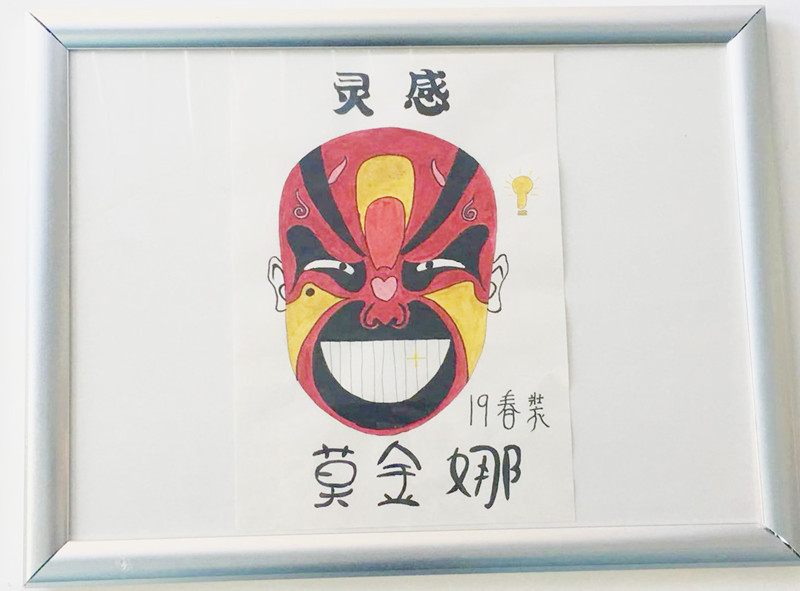 灵感
19春装
莫金娜